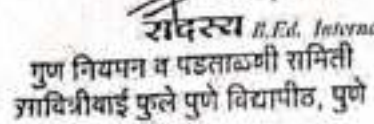 सदस्य B.Ed. Interna
गुण नियमन व पडताळणी समिती
सावित्रीबाई फुले पुणे विद्यापीठ, पुणे